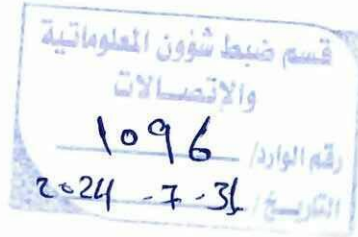 قسم ضبط شؤون المعلوماتية
والإتصالات
رقم الوارد/ 1096
التاريخ/ 2024 - 7 - 31